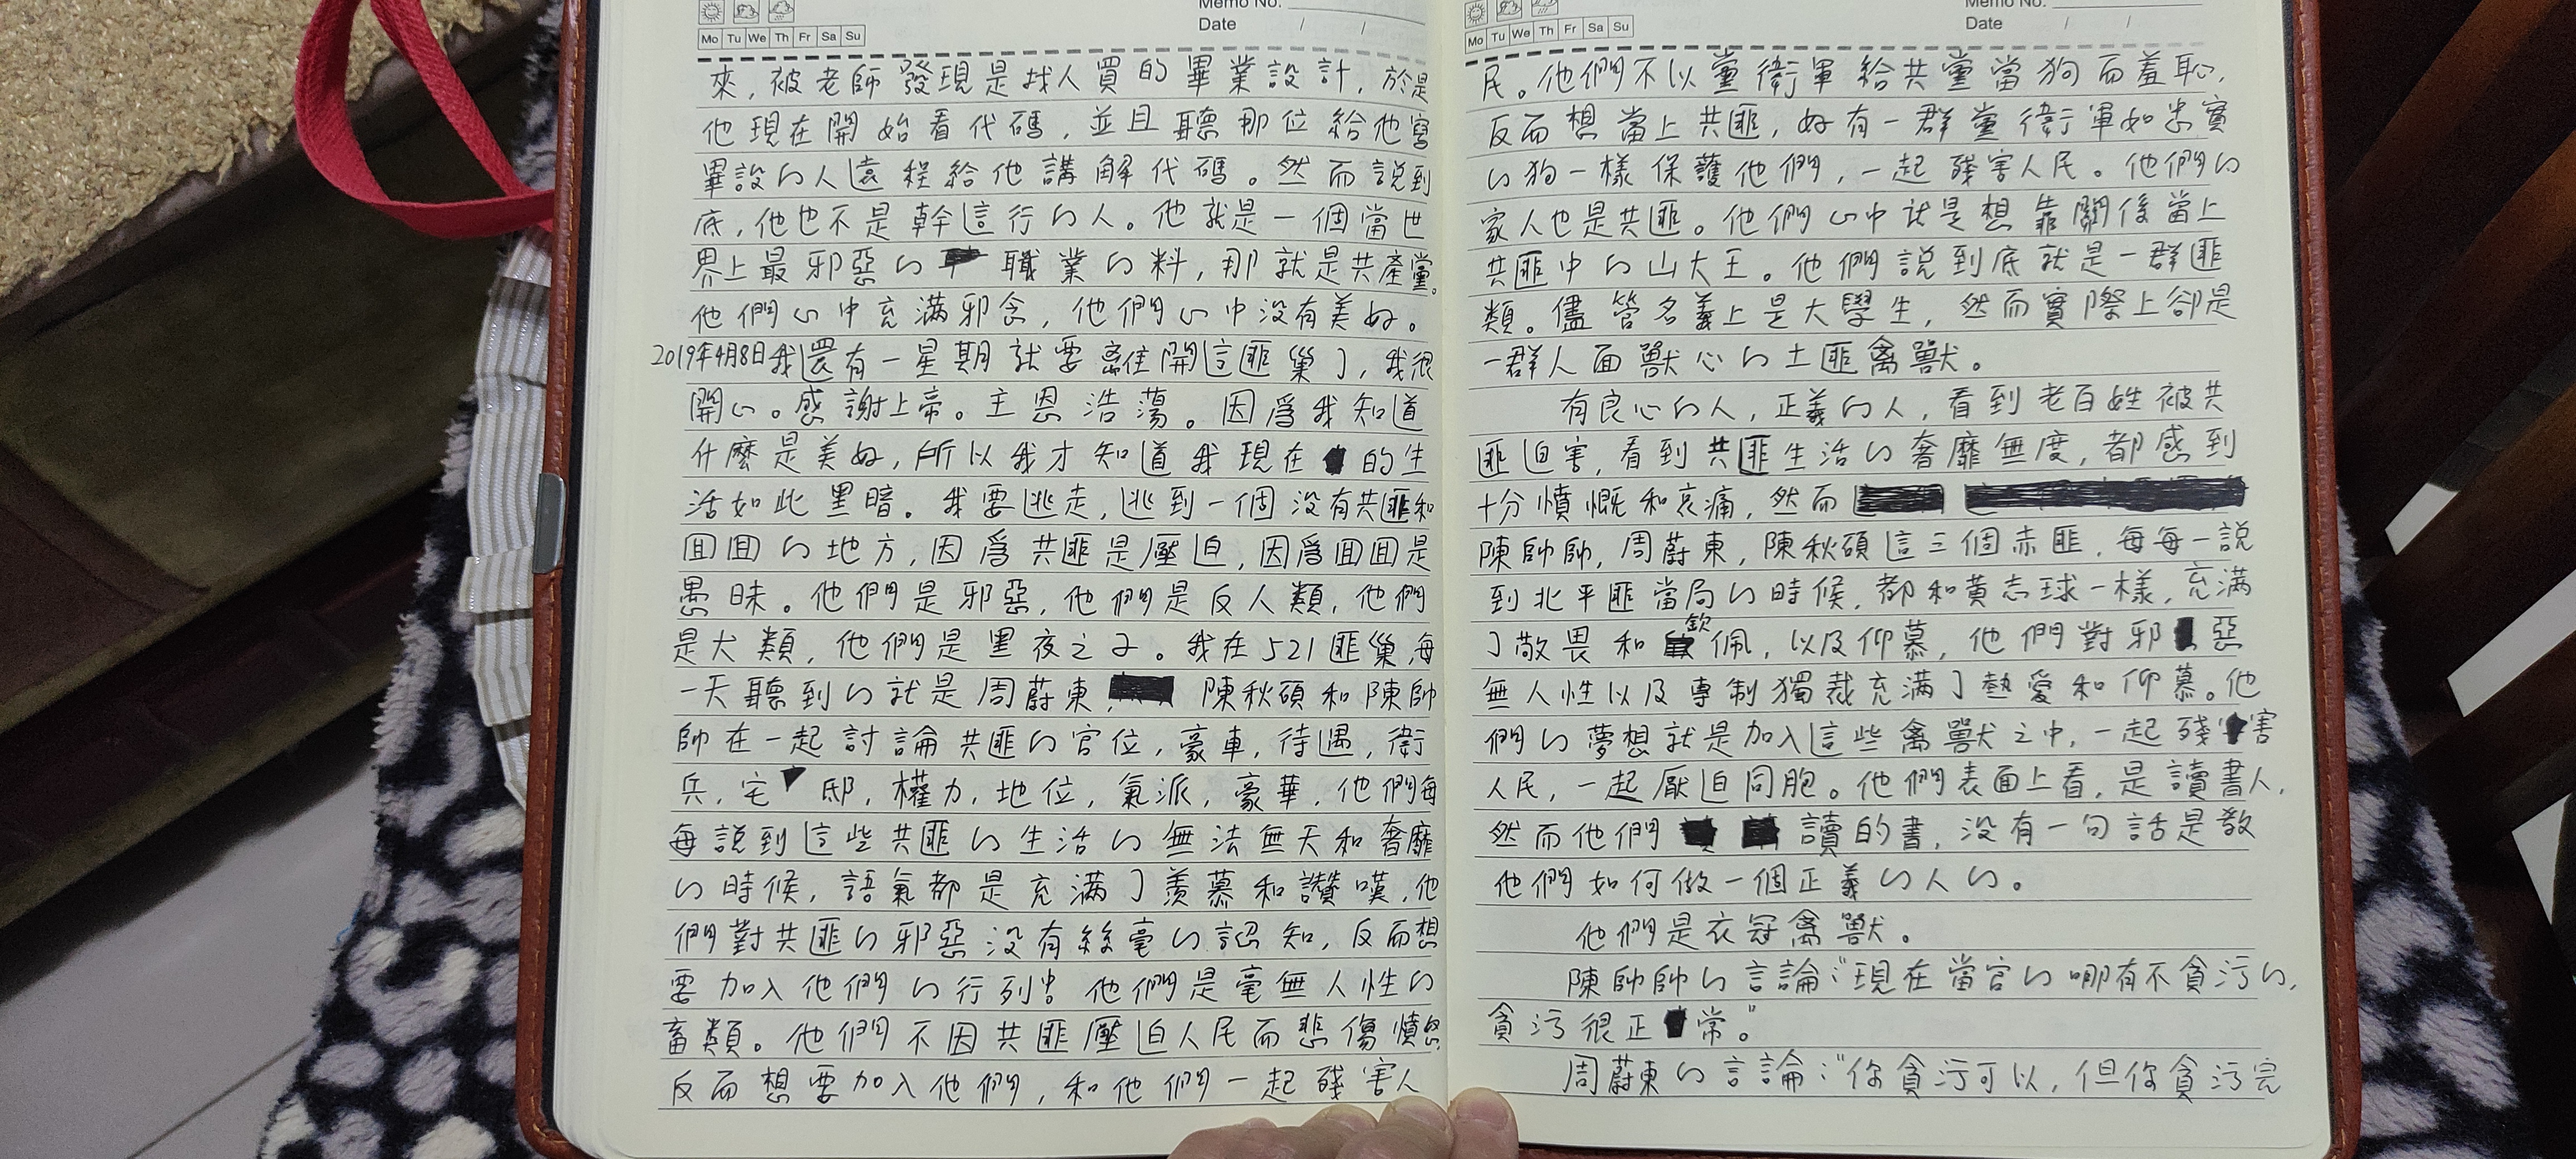 Memo No.
Date / /
Mo Tu We Th Fr Sa Su
來,被老師發現是找人買的畢業設計,於是
他現在開始看代碼,並且聽那位給他寫
畢設的人遠程給他講解代碼。然而說到
底,他也不是幹這行的人。他就是一個當世
界上最邪惡的職業的料,那就是共產黨。
他們心中充滿邪念,他們心中沒有美好。
2019年4月8日我還有一星期就要離開這匪巢了,我很
開心。感謝上帝。主恩浩蕩。因爲我知道
什麼是美好,所以我才知道我現在的生
活如此黑暗。我要逃走,逃到一個沒有共匪和
回回的地方,因爲共匪是壓迫,因爲回回是
愚昧。他們是邪惡,他們是反人類,他們
是犬類,他們是黑夜之子。我在521匪巢,每
一天聽到的就是周蔚東,陳秋碩和陳帥
帥在一起討論共匪的官位,豪車,待遇,衛
兵,宅邸,權力,地位,氣派,豪華,他們每
每說到這些共匪的生活的無法無天和奢靡
的時候,語氣都是充滿了羨慕和讚嘆,他
們對共匪的邪惡沒有絲毫的認知,反而想
要加入他們的行列中。他們是毫無人性的
畜類。他們不因共匪壓迫人民而悲傷憤怒,
反而想要加入他們,和他們一起殘害人
Memo No.
Date / /
Mo Tu We Th Fr Sa Su
民。他們不以黨衛軍給共黨當狗而羞恥,
反而想當上共匪,好有一群黨衛軍如忠實
的狗一樣保護他們,一起殘害人民。他們的
家人也是共匪。他們心中就是想靠關係當上
共匪中的山大王。他們說到底就是一群匪
類。儘管名義上是大學生,然而實際上卻是
一群人面獸心的土匪禽獸。
有良心的人,正義的人,看到老百姓被共
匪迫害,看到共匪生活的奢靡無度,都感到
十分憤慨和哀痛,然而
陳帥帥,周蔚東,陳秋碩這三個赤匪,每每一說
到北平匪當局的時候,都和黃志球一樣,充滿
了敬畏和欽佩,以及仰慕,他們對邪惡
無人性以及專制獨裁充滿了熱愛和仰慕。他
們的夢想就是加入這些禽獸之中,一起殘害
人民,一起壓迫同胞。他們表面上看,是讀書人,
然而他們讀的書,沒有一句話是教
他們如何做一個正義的人的。
他們是衣冠禽獸。
陳帥帥的言論:“現在當官的哪有不貪污的,
貪污很正常。”
周蔚東的言論:“你貪污可以,但你貪污完